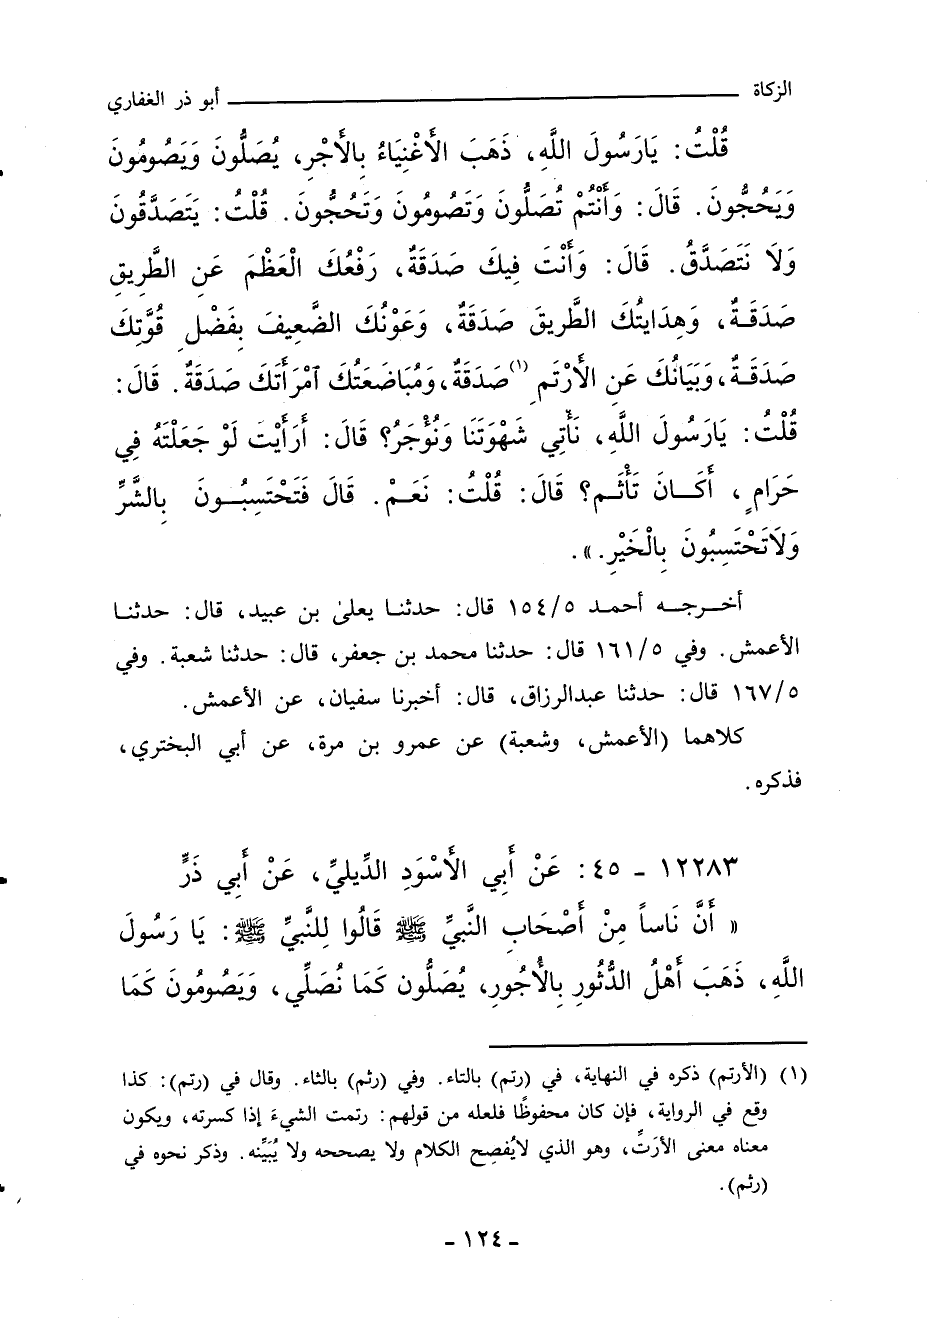 الزكاة ـــــــــــــ أبو ذر الغفاري
قُلْتُ: يَارَسُولَ اللَّهِ، ذَهَبَ الأَغْنِيَاءُ بِالأَجْرِ، يُصَلُّونَ وَيَصُومُونَ
وَيَحُجُّونَ. قَالَ: وَأَنْتُمْ تُصَلُّونَ وَتَصُومُونَ وَتَحُجُّونَ. قُلْتُ: يَتَصَدَّقُونَ
وَلَا نَتَصَدَّقُ. قَالَ: وَأَنْتَ فِيكَ صَدَقَةٌ، رَفْعُكَ الْعَظْمَ عَنِ الطَّرِيقِ
صَدَقَةٌ، وَهِدَايَتُكَ الطَّرِيقَ صَدَقَةٌ، وَعَوْنُكَ الضَّعِيفَ بِفَضْلِ قُوَّتِكَ
صَدَقَةٌ، وَبَيَانُكَ عَنِ الأَرْتَمِ (١) صَدَقَةٌ، وَمُبَاضَعَتُكَ امْرَأَتَكَ صَدَقَةٌ. قَالَ:
قُلْتُ: يَارَسُولَ اللَّهِ، نَأْتِي شَهْوَتَنَا وَنُؤْجَرُ؟ قَالَ: أَرَأَيْتَ لَوْ جَعَلْتَهُ فِي
حَرَامٍ، أَكَانَ تَأْثَم؟ قَالَ: قُلْتُ: نَعَمْ. قَالَ فَتَحْتَسِبُونَ بِالشَّرِّ
وَلَاتَحْتَسِبُونَ بِالْخَيْرِ.».
أخرجه أحمد ١٥٤/٥ قال: حدثنا يعلىٰ بن عبيد، قال: حدثنا
الأعمش. وفي ١٦١/٥ قال: حدثنا محمد بن جعفر، قال: حدثنا شعبة. وفي
١٦٧/٥ قال: حدثنا عبدالرزاق، قال: أخبرنا سفيان، عن الأعمش.
كلاهما (الأعمش، وشعبة) عن عمرو بن مرة، عن أبي البختري،
فذكره.
١٢٢٨٣ ـ ٤٥: عَنْ أَبِي الأَسْوَدِ الدِّيلِيِّ، عَنْ أَبِي ذَرٍّ
« أَنَّ نَاساً مِنْ أَصْحَابِ النَّبِيِّ ﷺ قَالُوا لِلنَّبِيِّ ﷺ: يَا رَسُولَ
اللَّهِ، ذَهَبَ أَهْلُ الدُّثُورِ بِالأُجُورِ، يُصَلُّونَ كَمَا نُصَلِّي، وَيَصُومُونَ كَمَا
(١) (الأرتم) ذكره في النهاية، في (رتم) بالتاء. وفي (رثم) بالثاء. وقال في (رتم): كذا
وقع في الرواية، فإن كان محفوظًا فلعله من قولهم: رتمت الشيءَ إذا كسرته، ويكون
معناه معنى الأَرَتِّ، وهو الذي لايُفصِح الكلام ولا يصححه ولا يُبَيِّنه. وذكر نحوه في
(رثم).
ـ ١٢٤ ـ